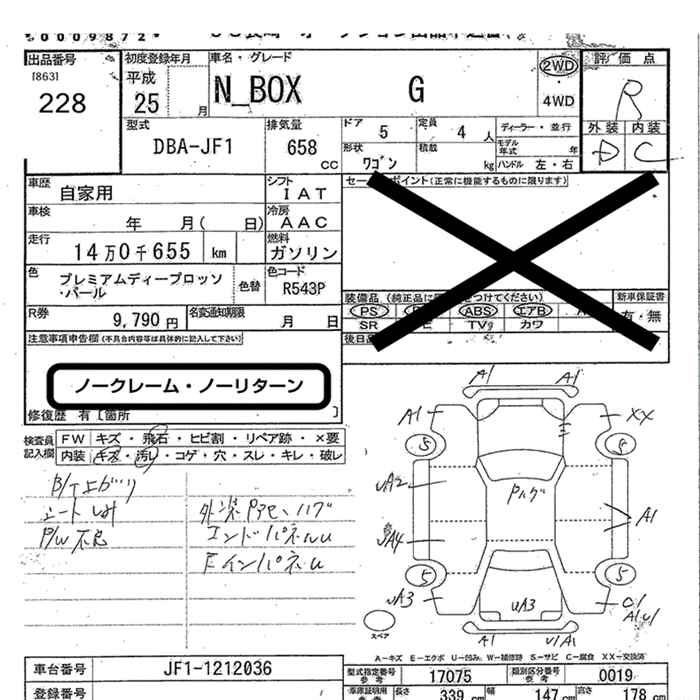 0009872
出品番号
[863]
228
初度登録年月
平成
25 月
車名・グレード
N_BOX G
2WD
・
4WD
評価点
R
外装 内装
D C
型式
DBA-JF1
排気量
658 cc
ドア 5
定員 4 人
ディーラー・並行
モデル年式 年
形状 ワゴン
積載 kg
ハンドル 左・右
車歴 自家用
シフト IAT
車検 年 月( 日)
冷房 AAC
走行 14万0千655 km
燃料 ガソリン
色 プレミアムディープロッソ・パール
色替
色コード R543P
R券 9,790 円
名変通知期限 月 日
セー ポイント(正常に機能するものに限ります)
装備品 (純正品に つけてください)
新車保証書
PS ABS エアB
有・無
SR TV カワ
後日
注意事項申告欄 (不具合内容等は具体的に記入して下さい)
ノークレーム・ノーリターン
修復歴 有 [箇所 ]
検査員記入欄
FW キズ・飛石・ヒビ割・リペア跡・×要
内装 キズ・汚レ・コゲ・穴・スレ・キレ・破レ
シートしみ
P/W不良
エンドパネルU
A1 A1
A1 XX
5 5
UA2
A1
5 5
UA3 UA3
A1
スペア
A-キズ E-エクボ U-凹み W-補修跡 S-サビ C-腐食 XX-交換済
車台番号 JF1-1212036
型式指定番号 参考 17075
類別区分番号 参考 0019
登録番号
長さ 339 cm 幅 147 cm 高さ 178 cm